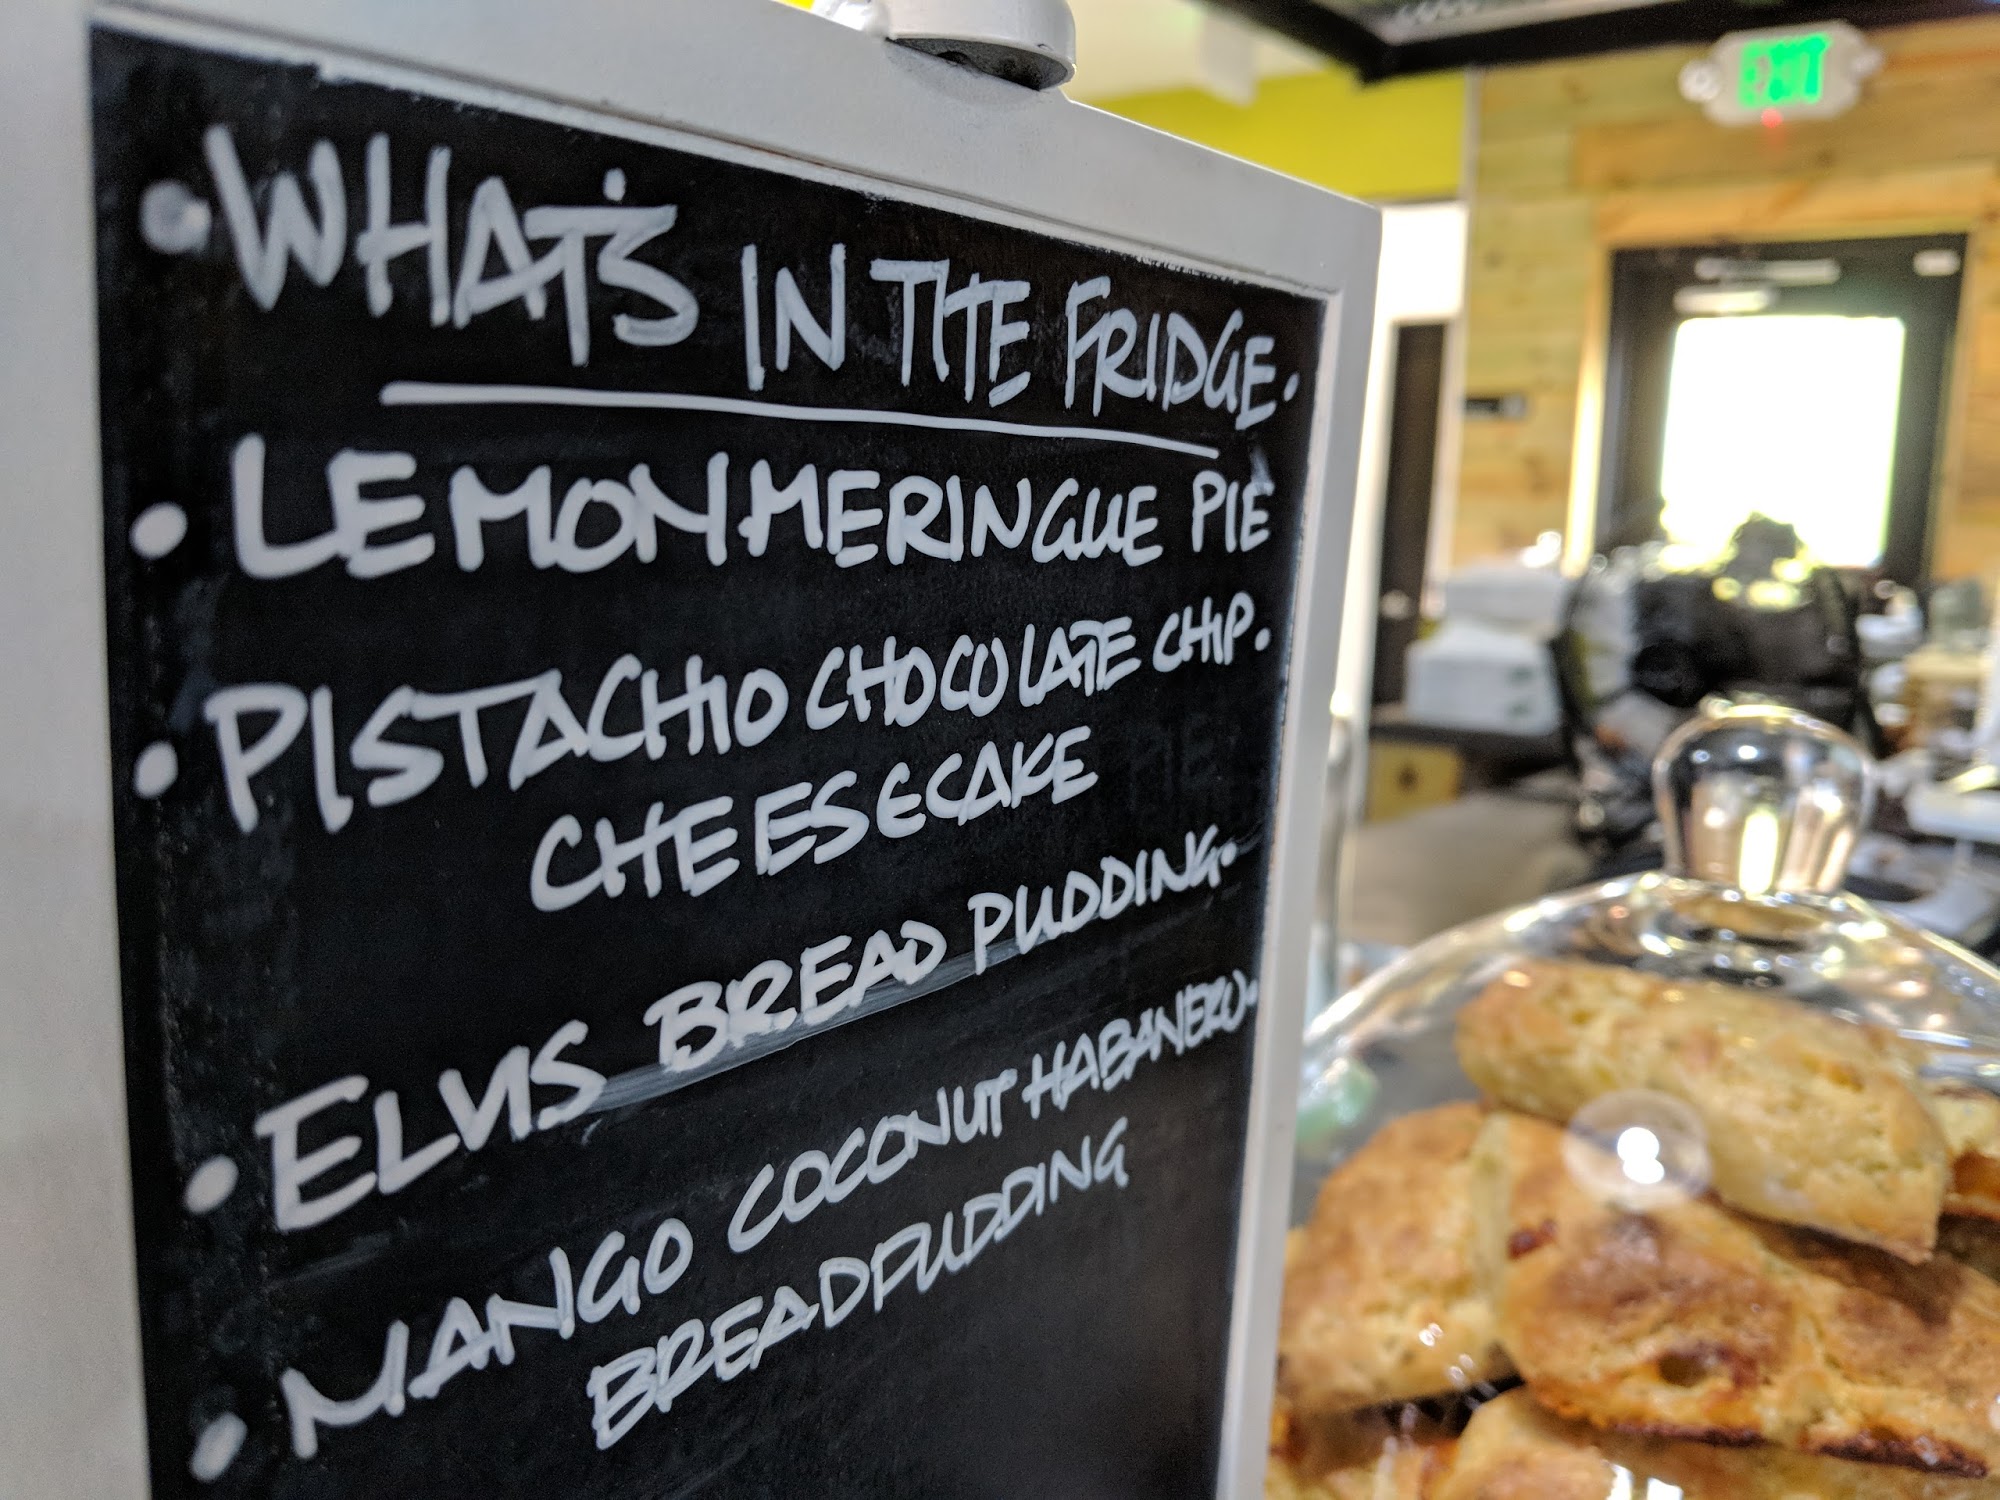 • WHAT'S IN THE FRIDGE.
• LEMON MERINGUE PIE
• PISTACHIO CHOCOLATE CHIP.
CHEESECAKE
• ELVIS BREAD PUDDING.
• MANGO COCONUT HABANERO.
BREAD PUDDING
EXIT